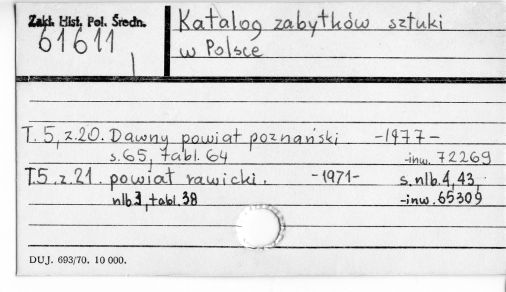 Zakł. Hist. Poł. Średn.
61611
Katalog zabytków sztuki
w Polsce
T.5, z.20. Dawny powiat poznański -1977-
s.65, tabl.64 -inw. 72269
T.5.z.21. powiat rawicki. -1971- s.nlb.4, 43,
nlb.3, tabl.38 -inw.65309
DUJ. 693/70. 10 000.